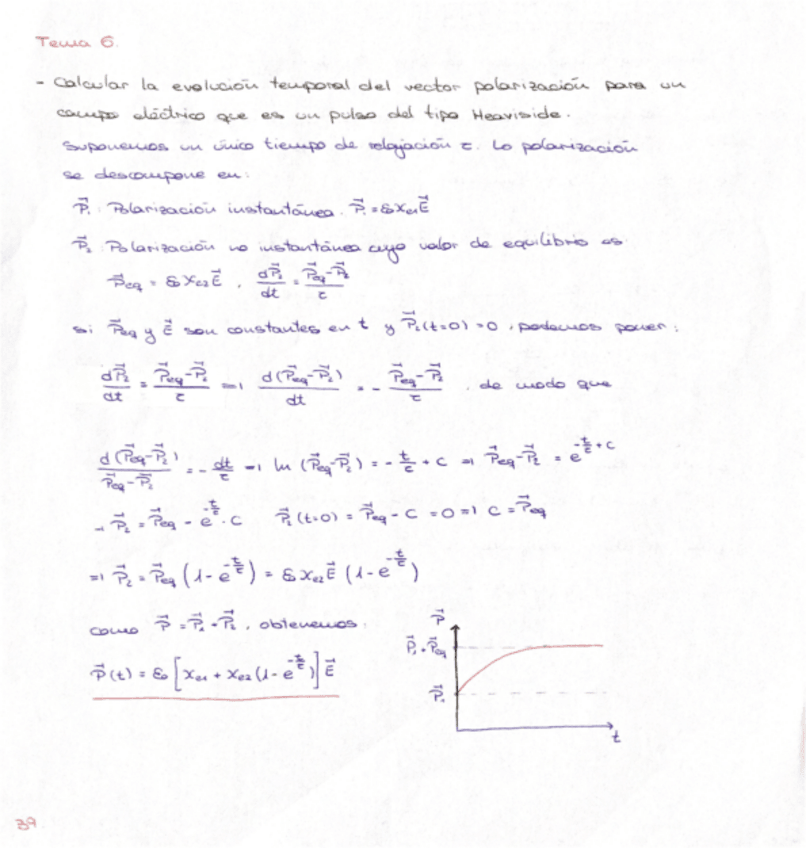 Tema 6.
- Calcular la evolución temporal del vector polarización para un
campo eléctrico que es un pulso del tipo Heaviside.
Suponemos un único tiempo de relajación τ. La polarización
se descompone en:
P⃗₁: Polarización instantánea. P⃗₁ = ε₀χₑ₁E⃗
P⃗₂: Polarización no instantánea cuyo valor de equilibrio es:
P⃗eq = ε₀χₑ₂E⃗, dP⃗₂/dt = (P⃗eq - P⃗₂)/τ
si P⃗eq y E⃗ son constantes en t y P⃗₂(t=0) = 0, podemos poner:
dP⃗₂/dt = (P⃗eq - P⃗₂)/τ ⇒ d(P⃗eq - P⃗₂)/dt = - (P⃗eq - P⃗₂)/τ, de modo que
d(P⃗eq - P⃗₂)/(P⃗eq - P⃗₂) = - dt/τ ⇒ ln(P⃗eq - P⃗₂) = - t/τ + C ⇒ P⃗eq - P⃗₂ = e^(-t/τ + C)
→ P⃗₂ = P⃗eq - e^(-t/τ) · C P⃗₂(t=0) = P⃗eq - C = 0 ⇒ C = P⃗eq
⇒ P⃗₂ = P⃗eq (1 - e^(-t/τ)) = ε₀χₑ₂E⃗ (1 - e^(-t/τ))
como P⃗ = P⃗₁ + P⃗₂, obtenemos:
P⃗(t) = ε₀[χₑ₁ + χₑ₂(1 - e^(-t/τ))]E⃗
P⃗
P⃗₁ + P⃗eq
P⃗₁
t
39